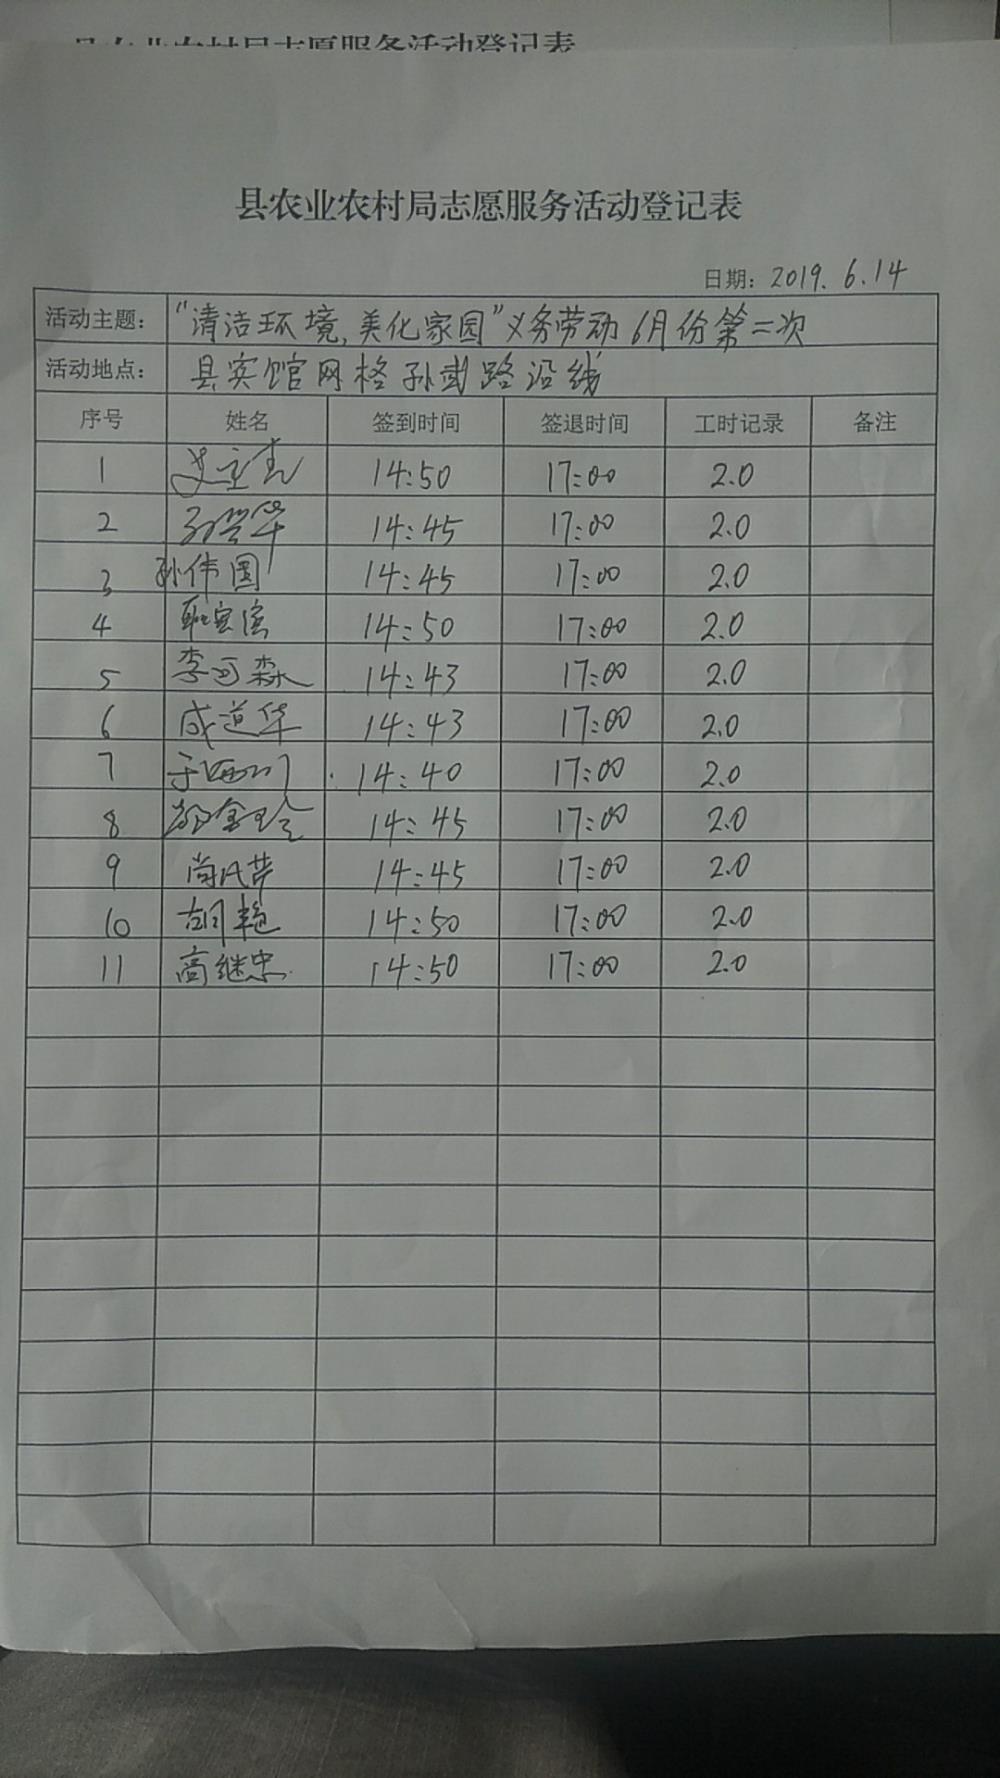 县农业农村局志愿服务活动登记表
县农业农村局志愿服务活动登记表
日期：2019.6.14
活动主题： “清洁环境,美化家园”义务劳动6月份第二次
活动地点： 县宾馆网格孙武路沿线
序号 姓名 签到时间 签退时间 工时记录 备注
1 14:50 17:00 2.0
2 14:45 17:00 2.0
3 孙伟国 14:45 17:00 2.0
4 14:50 17:00 2.0
5 李可森 14:43 17:00 2.0
6 成道华 14:43 17:00 2.0
7 14:40 17:00 2.0
8 14:45 17:00 2.0
9 尚民芹 14:45 17:00 2.0
10 胡艳 14:50 17:00 2.0
11 高继忠 14:50 17:00 2.0